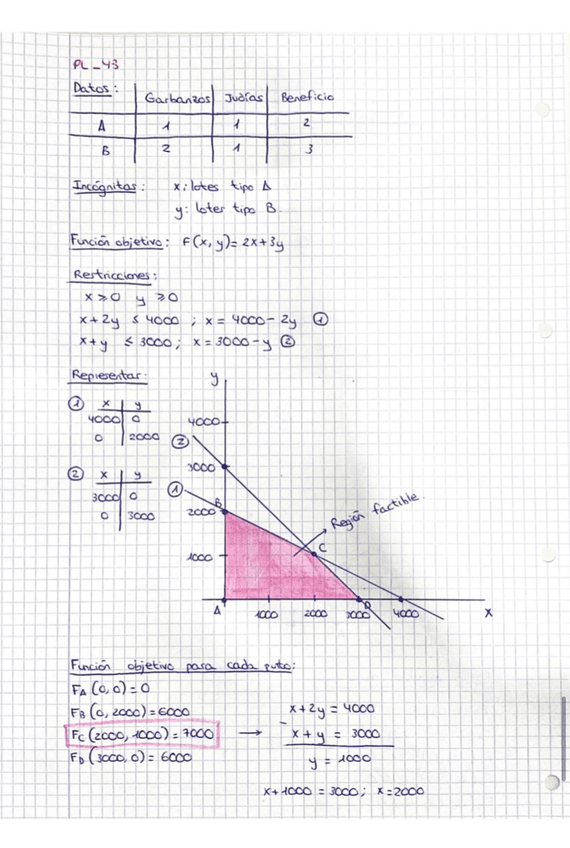 PL_43
Datos:
Garbanzos Judías Beneficio
A 1 1 2
B 2 1 3
Incógnitas: x: lotes tipo A
y: lotes tipo B.
Función objetivo: F(x, y)= 2x+3y
Restricciones:
x ≥ 0 y ≥ 0
x + 2y ≤ 4000 ; x = 4000 - 2y ①
x + y ≤ 3000 ; x = 3000 - y ②
Representar:
① x y
4000 0
0 2000
② x y
3000 0
0 3000
y
4000
②
3000
①
B
2000
Región factible.
C
1000
A 1000 2000 3000 D 4000 x
Función objetivo para cada punto:
FA (0, 0) = 0
FB (0, 2000) = 6000
FC (2000, 1000) = 7000
FD (3000, 0) = 6000
→
x + 2y = 4000
- x + y = 3000
y = 1000
x + 1000 = 3000 ; x = 2000